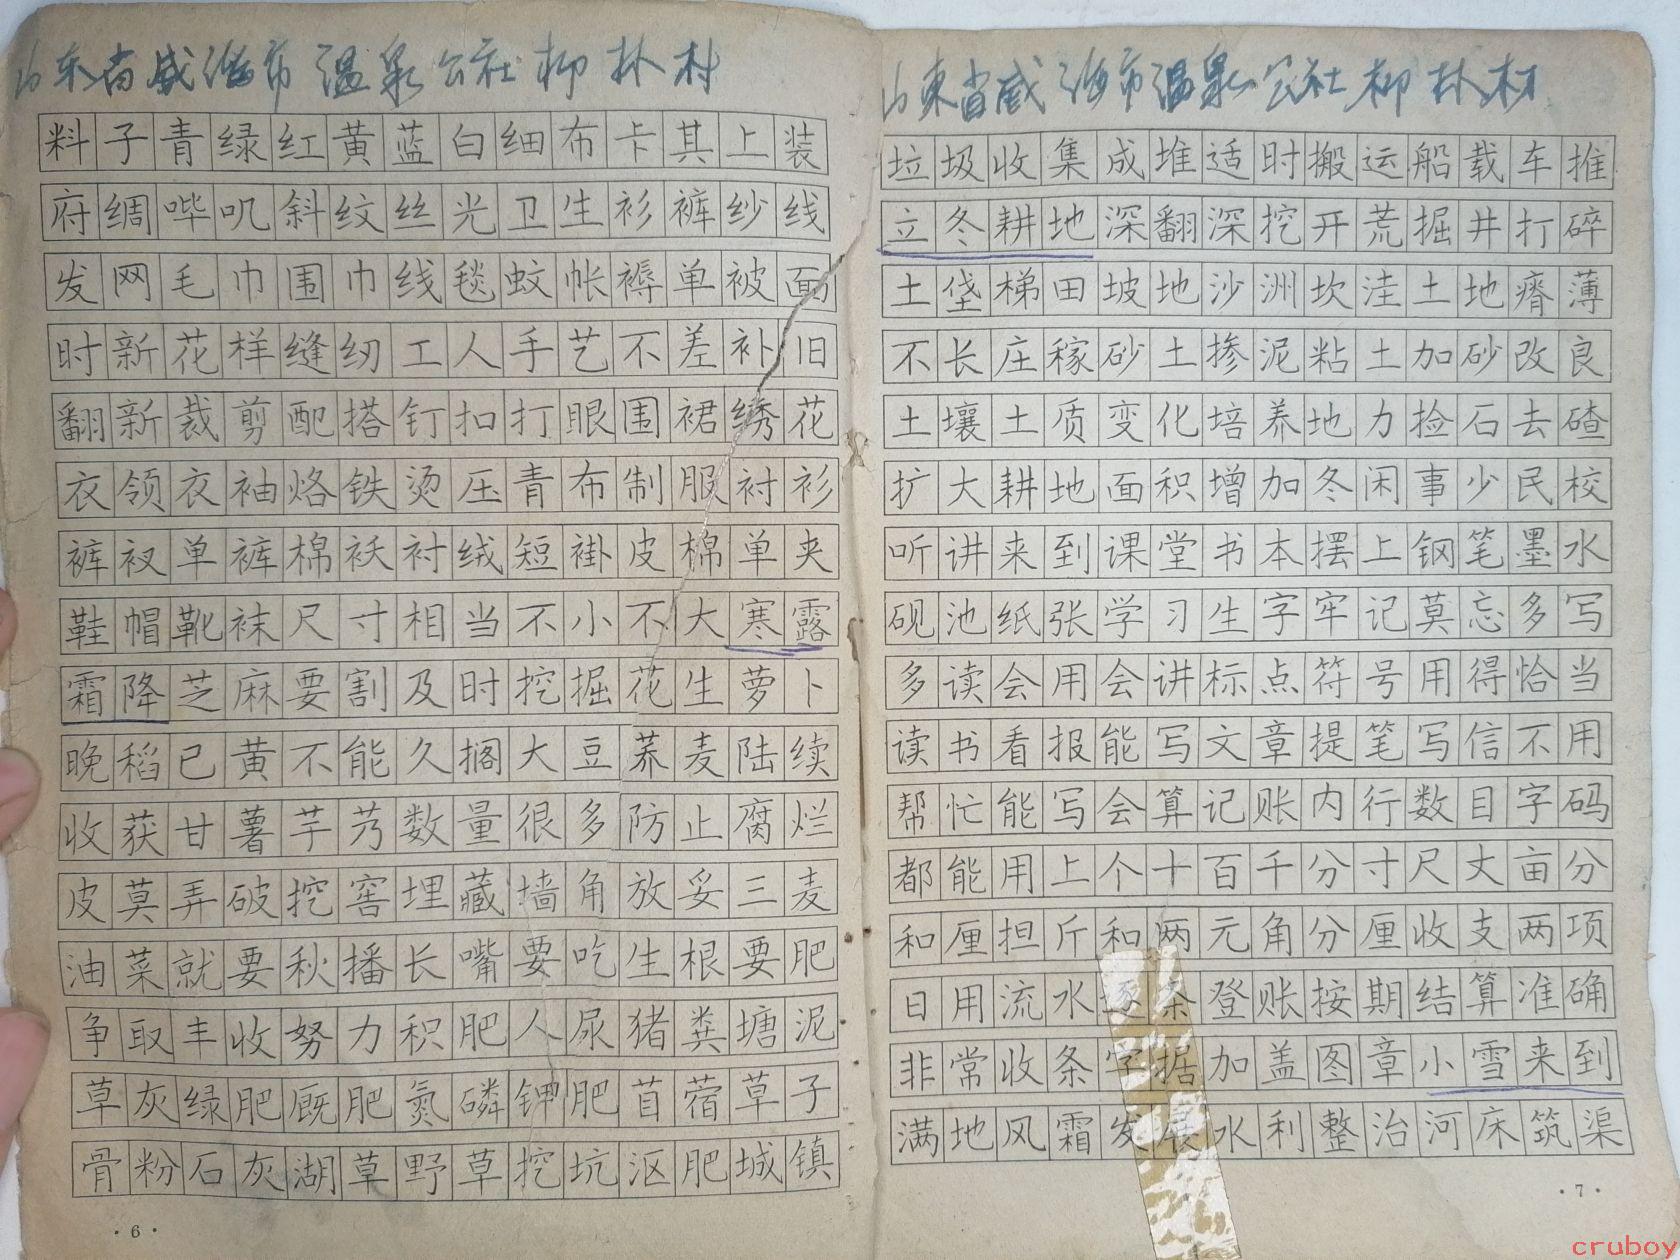 山东省威海市温泉公社柳林村
料子青绿红黄蓝白细布卡其上装
府绸哔叽斜纹丝光卫生衫裤纱线
发网毛巾围巾线毯蚊帐褥单被面
时新花样缝纫工人手艺不差补旧
翻新裁剪配搭钉扣打眼围裙绣花
衣领衣袖烙铁烫压青布制服衬衫
裤衩单裤棉袄衬绒短褂皮棉单夹
鞋帽靴袜尺寸相当不小不大寒露
霜降芝麻要割及时挖掘花生萝卜
晚稻已黄不能久搁大豆荞麦陆续
收获甘薯芋艿数量很多防止腐烂
皮莫弄破挖窖埋藏墙角放妥三麦
油菜就要秋播长嘴要吃生根要肥
争取丰收努力积肥人尿猪粪塘泥
草灰绿肥厩肥氮磷钾肥苜蓿草子
骨粉石灰湖草野草挖坑沤肥城镇
·6·
山東省威海市温泉公社柳林村
垃圾收集成堆适时搬运船载车推
立冬耕地深翻深挖开荒掘井打碎
土垡梯田坡地沙洲坎洼土地瘠薄
不长庄稼砂土掺泥粘土加砂改良
土壤土质变化培养地力捡石去碴
扩大耕地面积增加冬闲事少民校
听讲来到课堂书本摆上钢笔墨水
砚池纸张学习生字牢记莫忘多写
多读会用会讲标点符号用得恰当
读书看报能写文章提笔写信不用
帮忙能写会算记账内行数目字码
都能用上个十百千分寸尺丈亩分
和厘担斤和两元角分厘收支两项
日用流水逐条登账按期结算准确
非常收条字据加盖图章小雪来到
满地风霜发展水利整治河床筑渠
·7·
cruboy